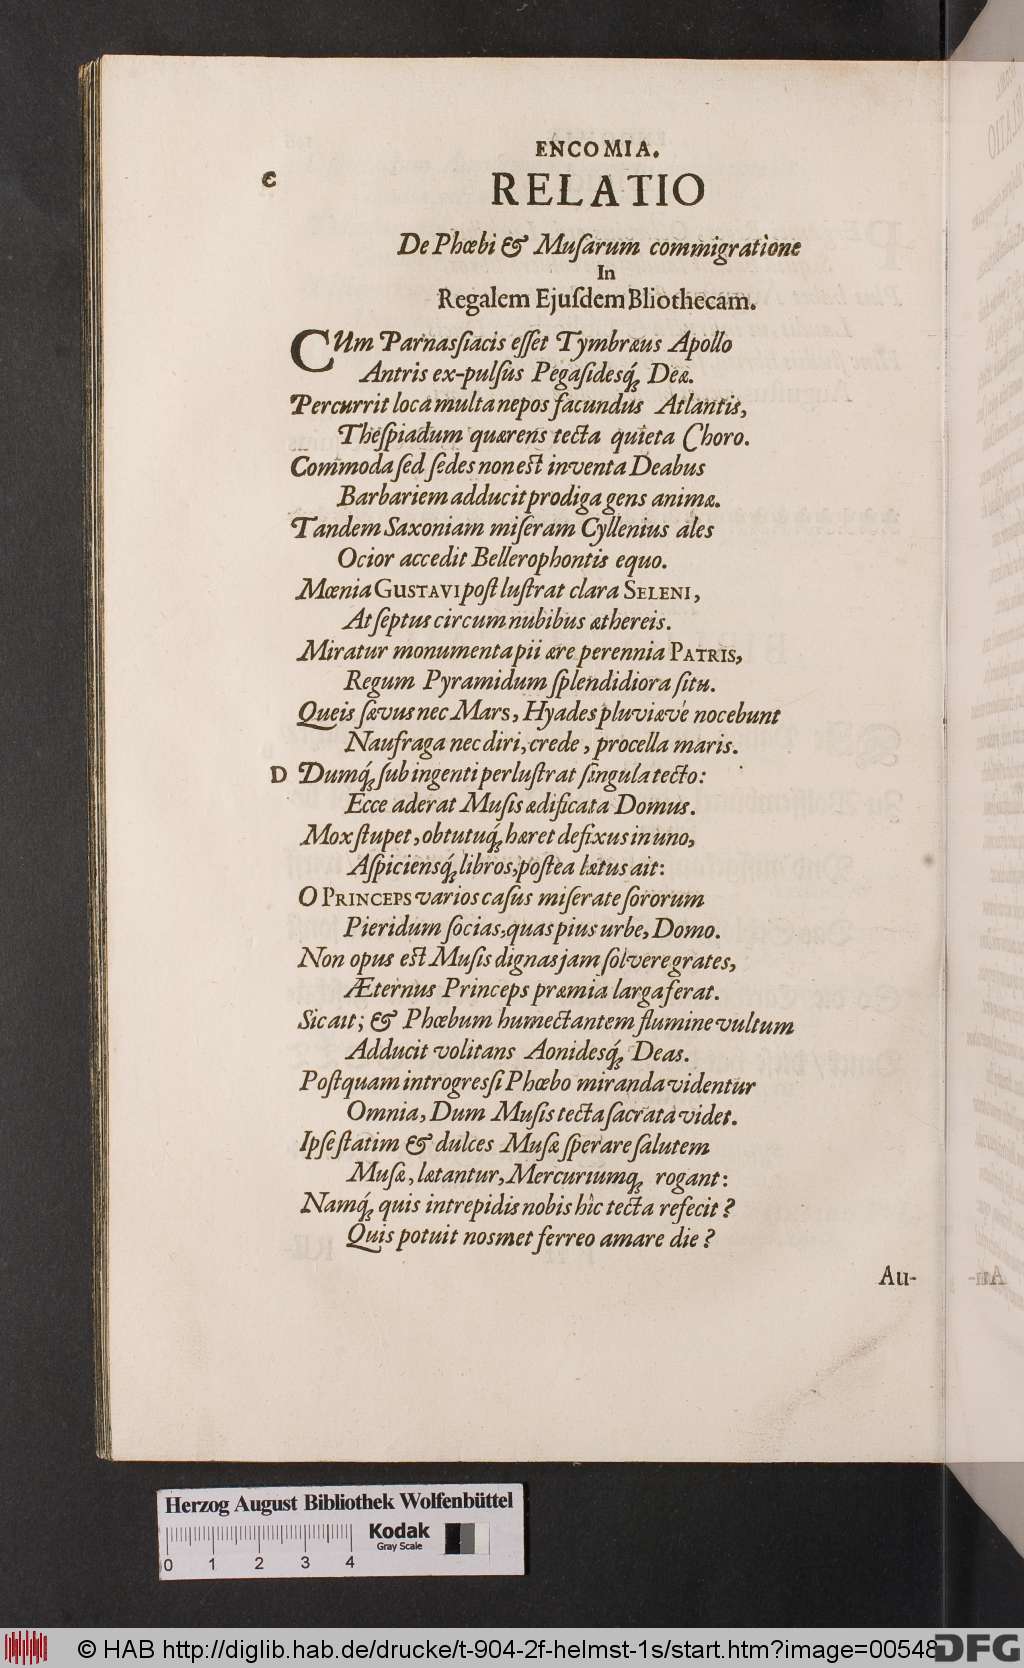 ENCOMIA.
C
RELATIO
De Phœbi & Muſarum commigratione
In
Regalem Ejuſdem Bliothecam.
CUm Parnasſiacis eſſet Tymbræus Apollo
Antris ex-pulſus Pegaſidesq́; Deæ.
Percurrit loca multa nepos facundus Atlantis,
Theſpiadum quærens tecta quieta Choro.
Commoda ſed ſedes non est inventa Deabus
Barbariem adducit prodiga gens animæ.
Tandem Saxoniam miſeram Cyllenius ales
Ocior accedit Bellerophontis equo.
Mœnia GUSTAVI poſt luſtrat clara SELENI,
At ſeptus circum nubibus æthereis.
Miratur monumenta pii ære perennia PATRIS,
Regum Pyramidum ſplendidiora ſitu.
Queis ſævus nec Mars, Hyades pluviæve nocebunt
Naufraga nec diri, crede, procella maris.
D Dumq́; ſub ingenti perluſtrat ſingula tecto:
Ecce aderat Muſis ædificata Domus.
Mox ſtupet, obtutuq́; hæret defixus in uno,
Aſpiciensq́; libros, poſtea lætus ait:
O PRINCEPS varios caſus miſerate ſororum
Pieridum ſocias, quas pius urbe, Domo.
Non opus est Muſis dignas jam ſolvere grates,
Æternus Princeps præmia larga ferat.
Sic ait; & Phœbum humectantem flumine vultum
Adducit volitans Aonidesq́; Deas.
Poſtquam introgresſi Phœbo miranda videntur
Omnia, Dum Muſis tecta ſacrata videt.
Ipſe ſtatim & dulces Muſæ ſperare ſalutem
Muſæ, lætantur, Mercuriumq; rogant:
Namq́; quis intrepidis nobis hîc tecta refecit?
Quis potuit nosmet ferreo amare die?
Au-
Herzog August Bibliothek Wolfenbüttel
Kodak
Gray Scale
0 1 2 3 4
© HAB http://diglib.hab.de/drucke/t-904-2f-helmst-1s/start.htm?image=00548
DFG